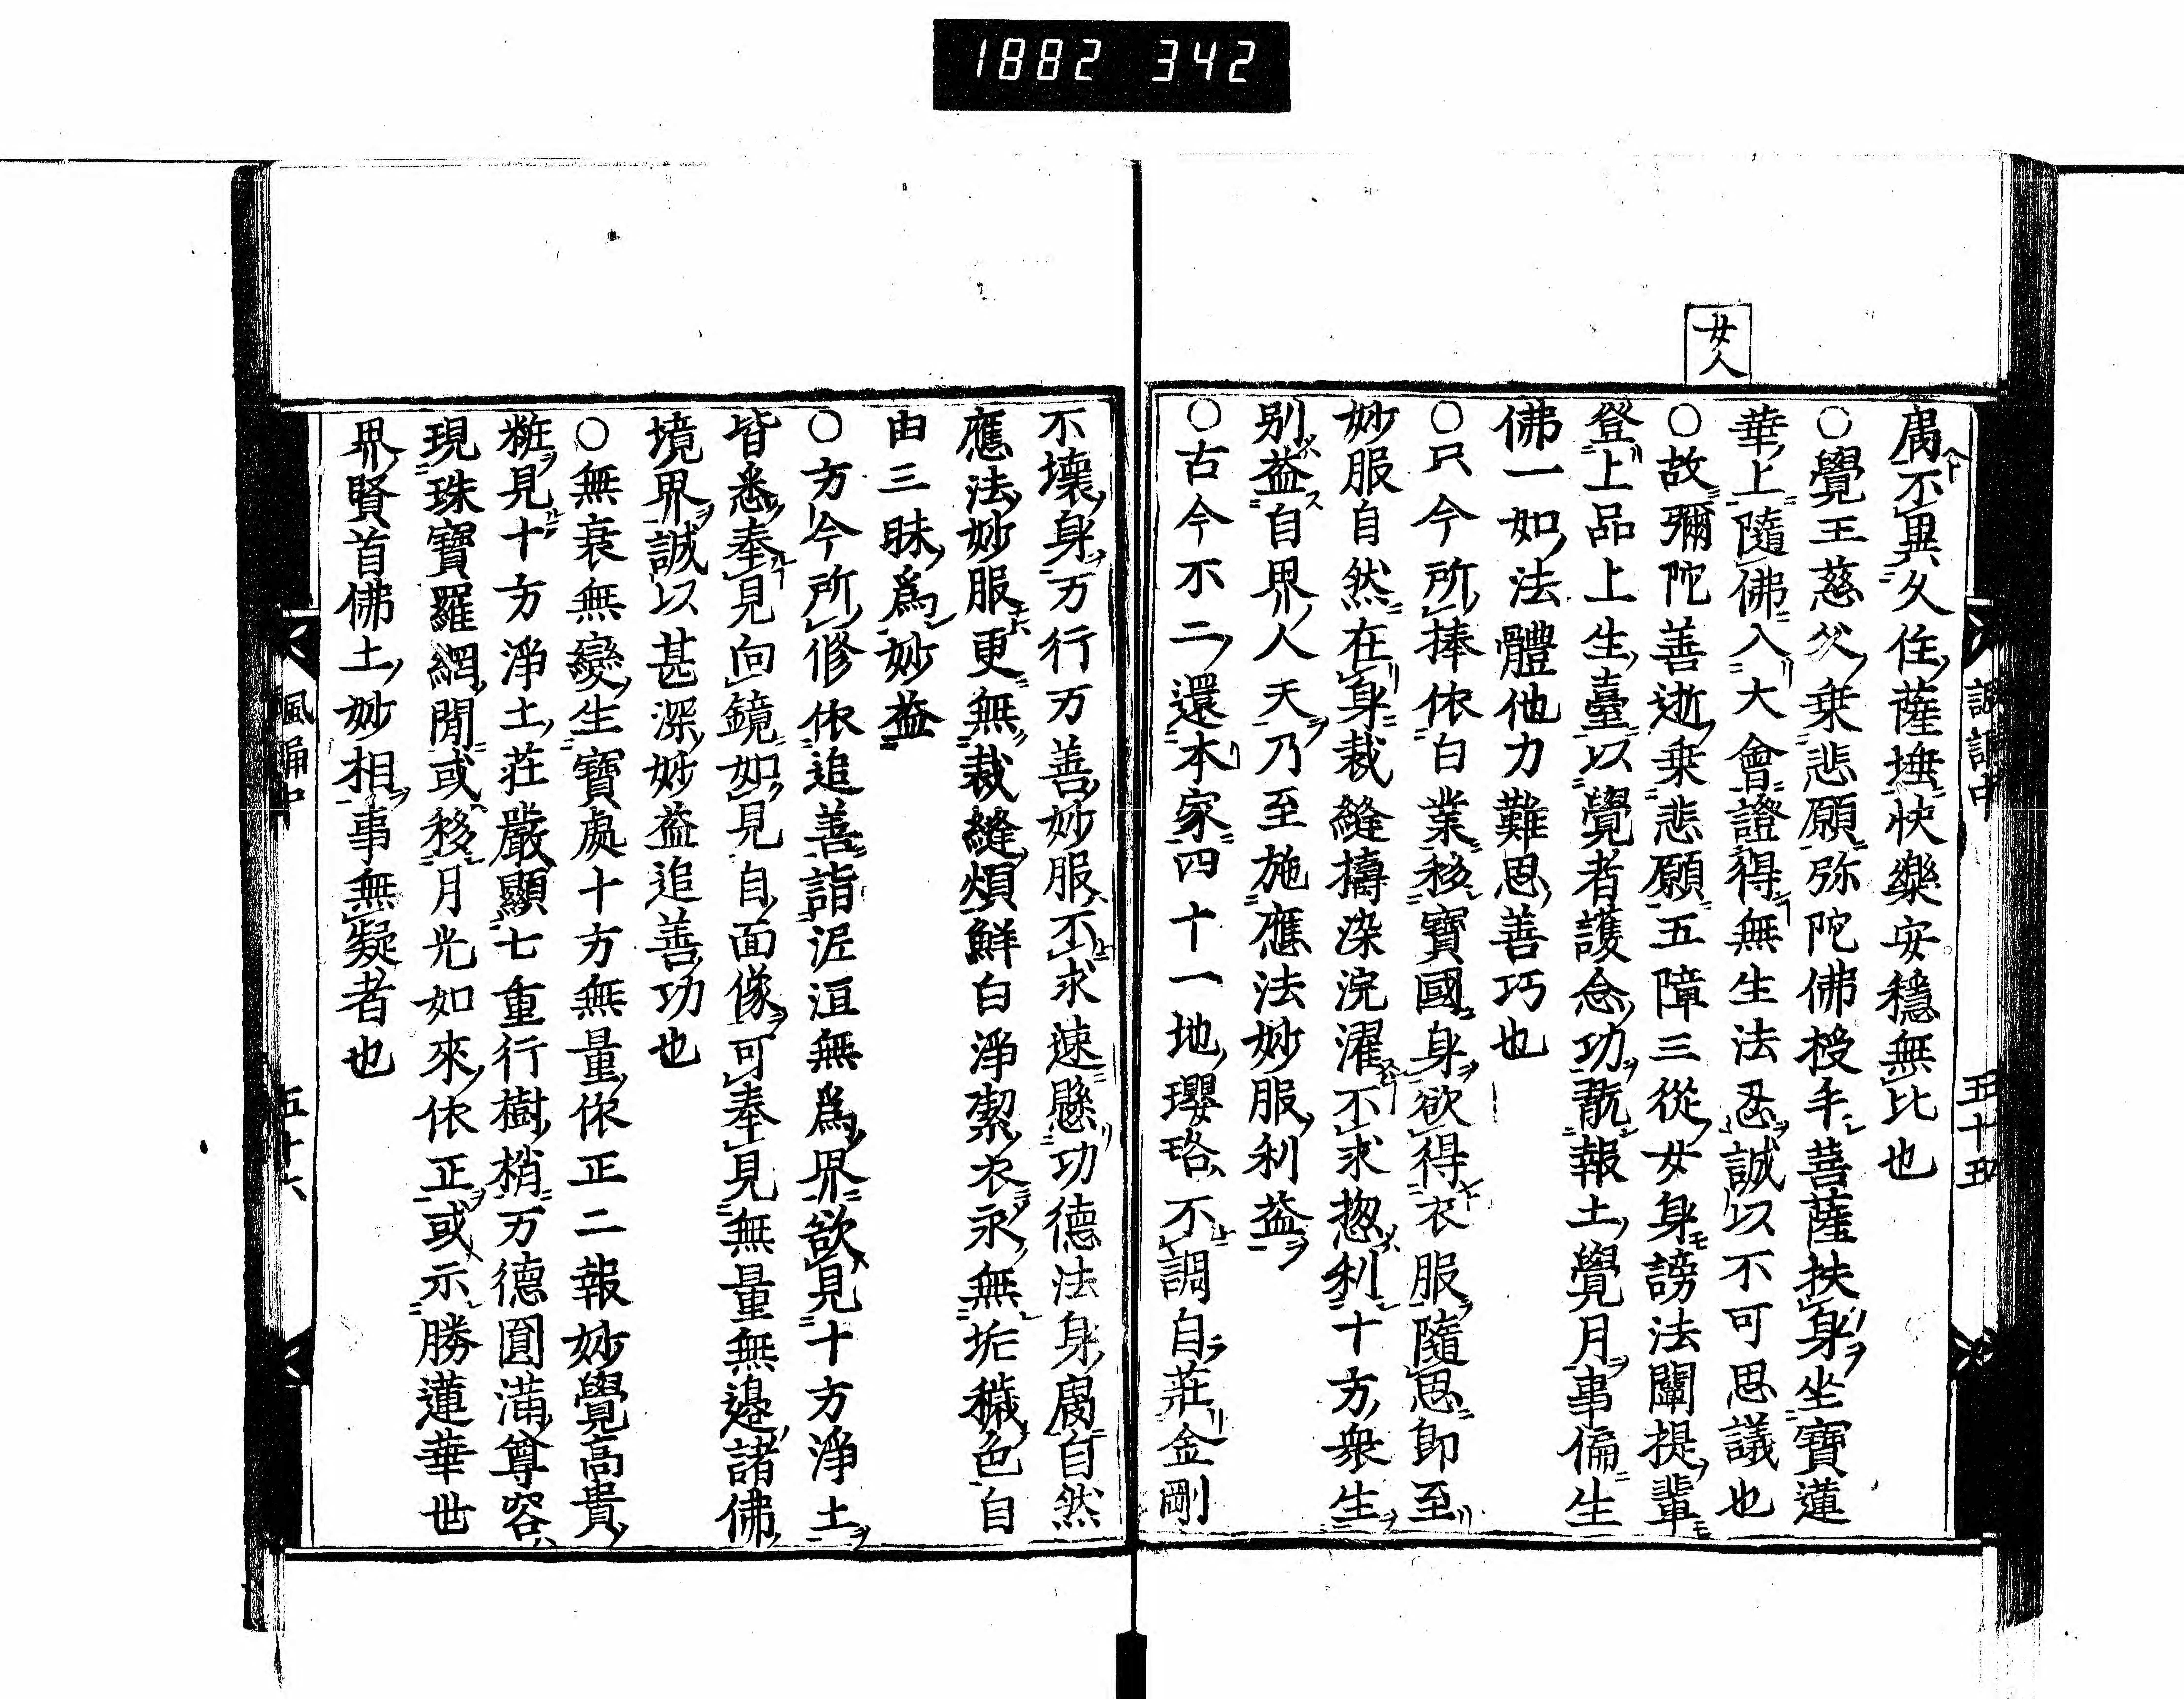 1882 342
女人
腐不異久住薩埵快樂安穩無比也
○覺王慈父乗悲願弥陀佛授手菩薩扶身坐寶蓮
華上隨佛入大會證得無生法忍誠以不可思議也
○故彌陀善逝乗悲願五障三從女身謗法闡提輩
登上品上生臺以覺者護念功翫報土覺月事偏生
佛一如法體他力難思善巧也
○只今所捧依白業移寶國身欲得衣服隨思即至
妙服自然在身裁縫擣染浣濯不求惣利十方衆生
別益自界人天乃至施應法妙服利益
○古今不二還本家四十一地瓔珞不調自莊金剛
不壞身万行万善妙服不求速懸功德法身腐自然
應法妙服更無裁縫煩鮮白淨潔衣永無垢穢色自
由三昧爲妙益
○方今所修依追善詣泥洹無爲界欲見十方淨土
皆悉奉見向鏡如見自面像可奉見無量無邊諸佛
境界誠以甚深妙益追善功也
○無衰無變生寶處十方無量依正二報妙覺高貴
粧見十方淨土莊嚴顯七重行樹梢万德圓滿尊容
現珠寶羅網間或移月光如來依正或示勝蓮華世
界賢首佛土妙相事無疑者也
五十五
諷誦中
五十六